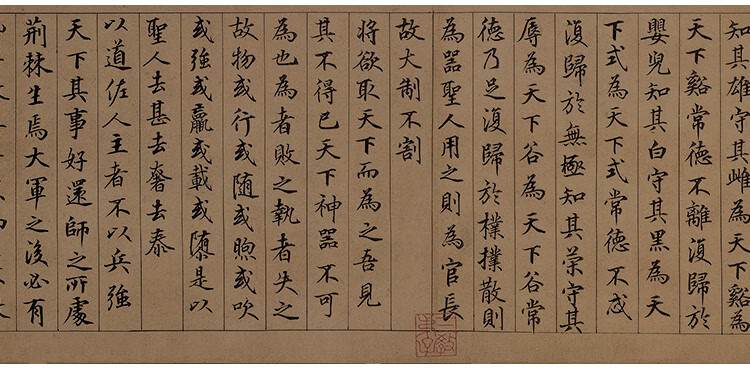 知其雄守其雌為天下谿為
天下谿常德不離復歸於
嬰兒知其白守其黑為天
下式為天下式常德不忒
復歸於無極知其榮守其
辱為天下谷為天下谷常
德乃足復歸於樸樸散則
為噐聖人用之則為官長
故大制不割
將欲取天下而為之吾見
其不得已天下神噐不可
為也為者敗之執者失之
故物或行或随或煦或吹
或強或羸或載或隳是以
聖人去甚去奢去泰
以道佐人主者不以兵強
天下其事好還師之所處
荊棘生焉大軍之後必有